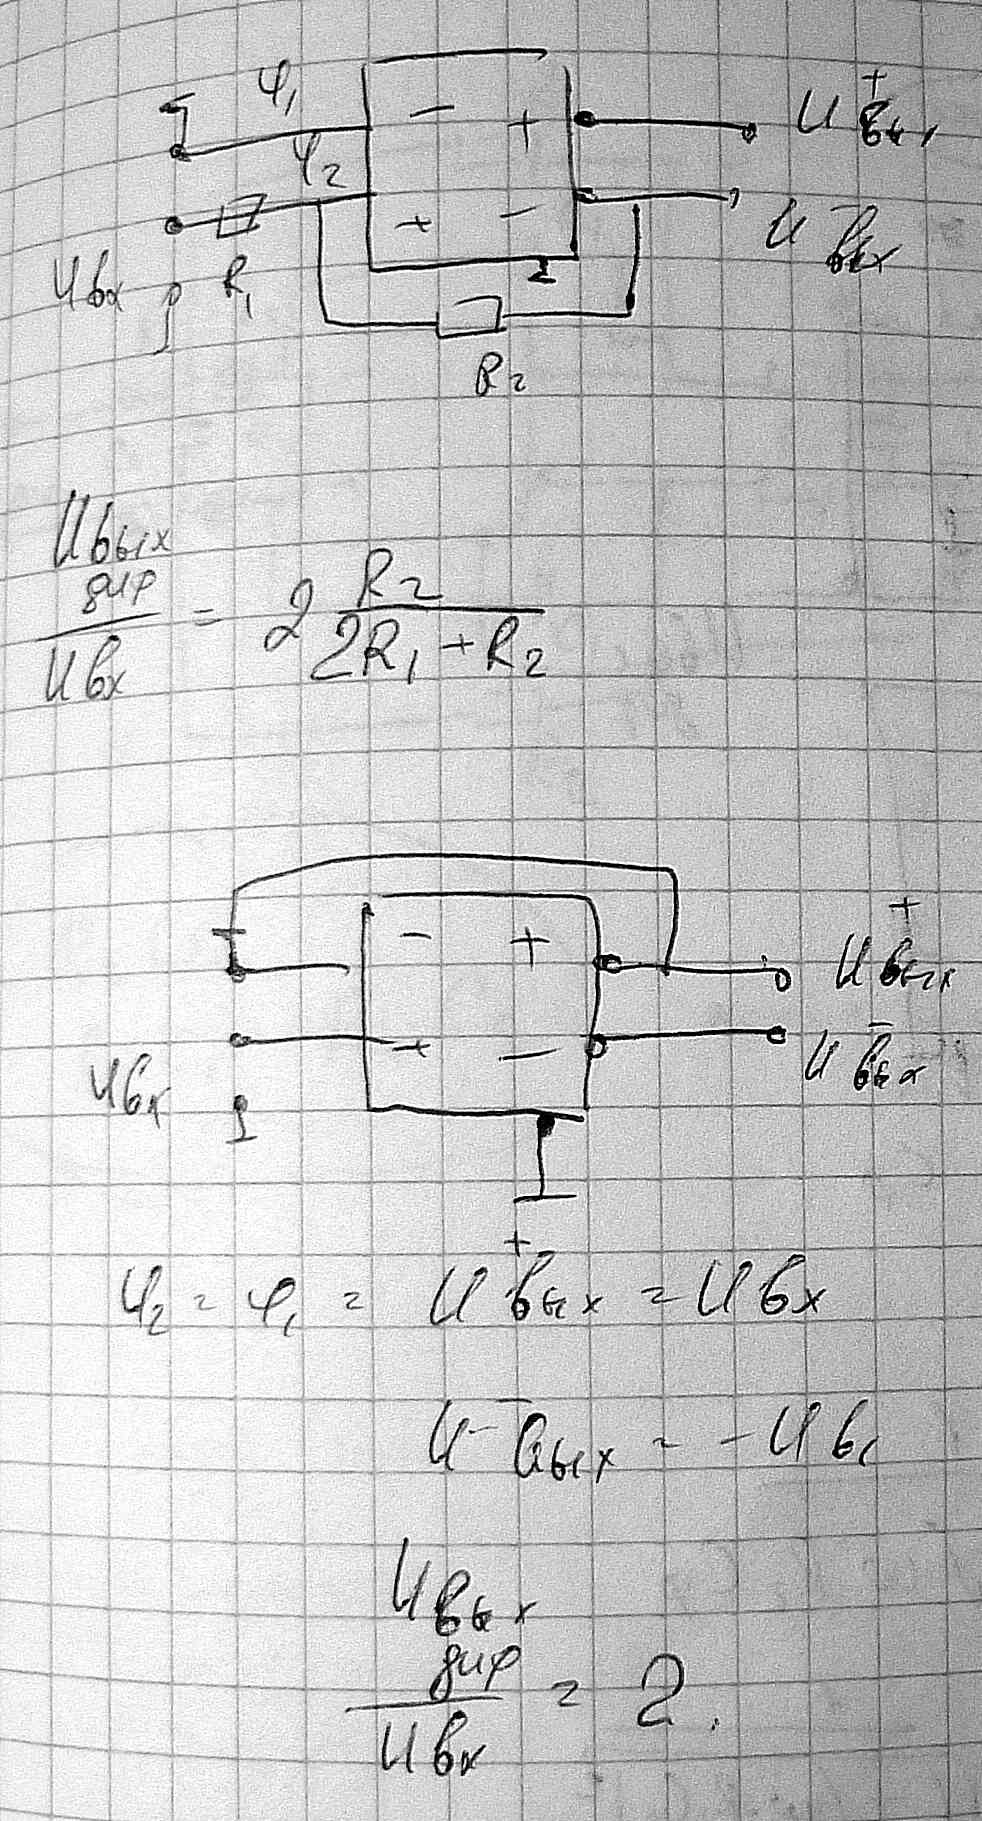 φ₁ − + U⁺вых
φ₂ + − U⁻вых
Uвх R₁
R₂
Uвых диф / Uвх = 2 R₂ / (2R₁ + R₂)
− + U⁺вых
+ − U⁻вых
Uвх
φ₂ = φ₁ = U⁺вых = Uвх
U⁻вых = − Uвх
Uвых диф / Uвх = 2.